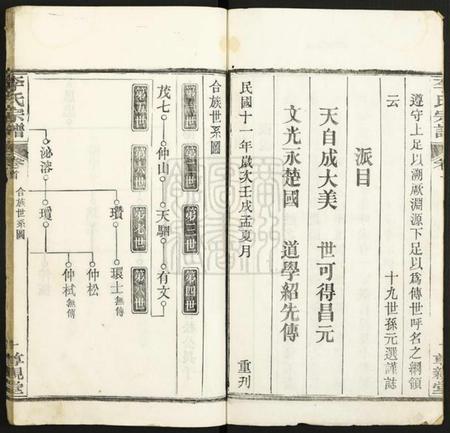 李氏宗譜
遵守上足以溯厥淵源下足以爲傳世呼名之綱領
云
十九世孫元選謹誌
派目
天自成大美 世可得昌元
文光永楚國 道學紹先傳
民國十一年歲次壬戌孟夏月 重刊
合族世系圖
第一世
第二世
第三世
第四世
茂七
仲山
天關
有文
第五世
第六世
第七世
第八世
瓚
琝士無傳
仲松
瓊
仲栻無傳
泌溶
李氏宗譜
卷首
合族世系圖
一
尊親堂